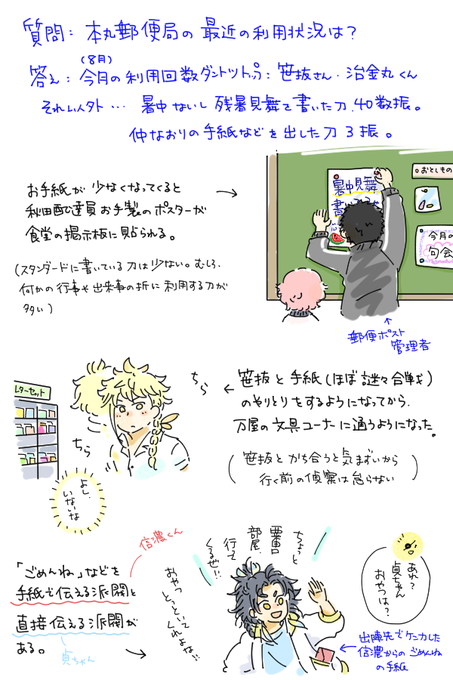 質問: 本丸郵便局の最近の利用状況は?
(8月)
答え: 今月の利用回数ダントツトップ: 笹抜さん・治金丸くん
それ以外… 暑中ないし残暑見舞を書いた刀 40数振。
仲なおりの手紙などを出した刀 3振。
お手紙が少なくなってくると
秋田配達員お手製のポスターが
食堂の掲示板に貼られる。
(スタンダードに書いている刀は少ない。むしろ、
何かの行事や出来事の折に利用する刀が
多い)
暑中見舞
書い
おとしもの
今月の
句会
郵便ポスト
管理者
レターセット
ちら
ちら
よし、
いないな
笹抜と手紙(ほぼ謎々合戦)
のやりとりをするようになってから、
万屋の文具コーナーに通うようになった。
(笹抜とかち合うと気まずいから
行く前の偵察は怠らない)
「ごめんね」などを
手紙で伝える派閥と
直接伝える派閥が
ある。
信濃くん
貞ちゃん
ちょっと
粟田口
部屋、
行って
くるぜ!!
おやつ
とっといて
くれよな!!
あれ?
貞ちゃん
おやつは?
出陣先でケンカした
信濃からのごめんね
の手紙